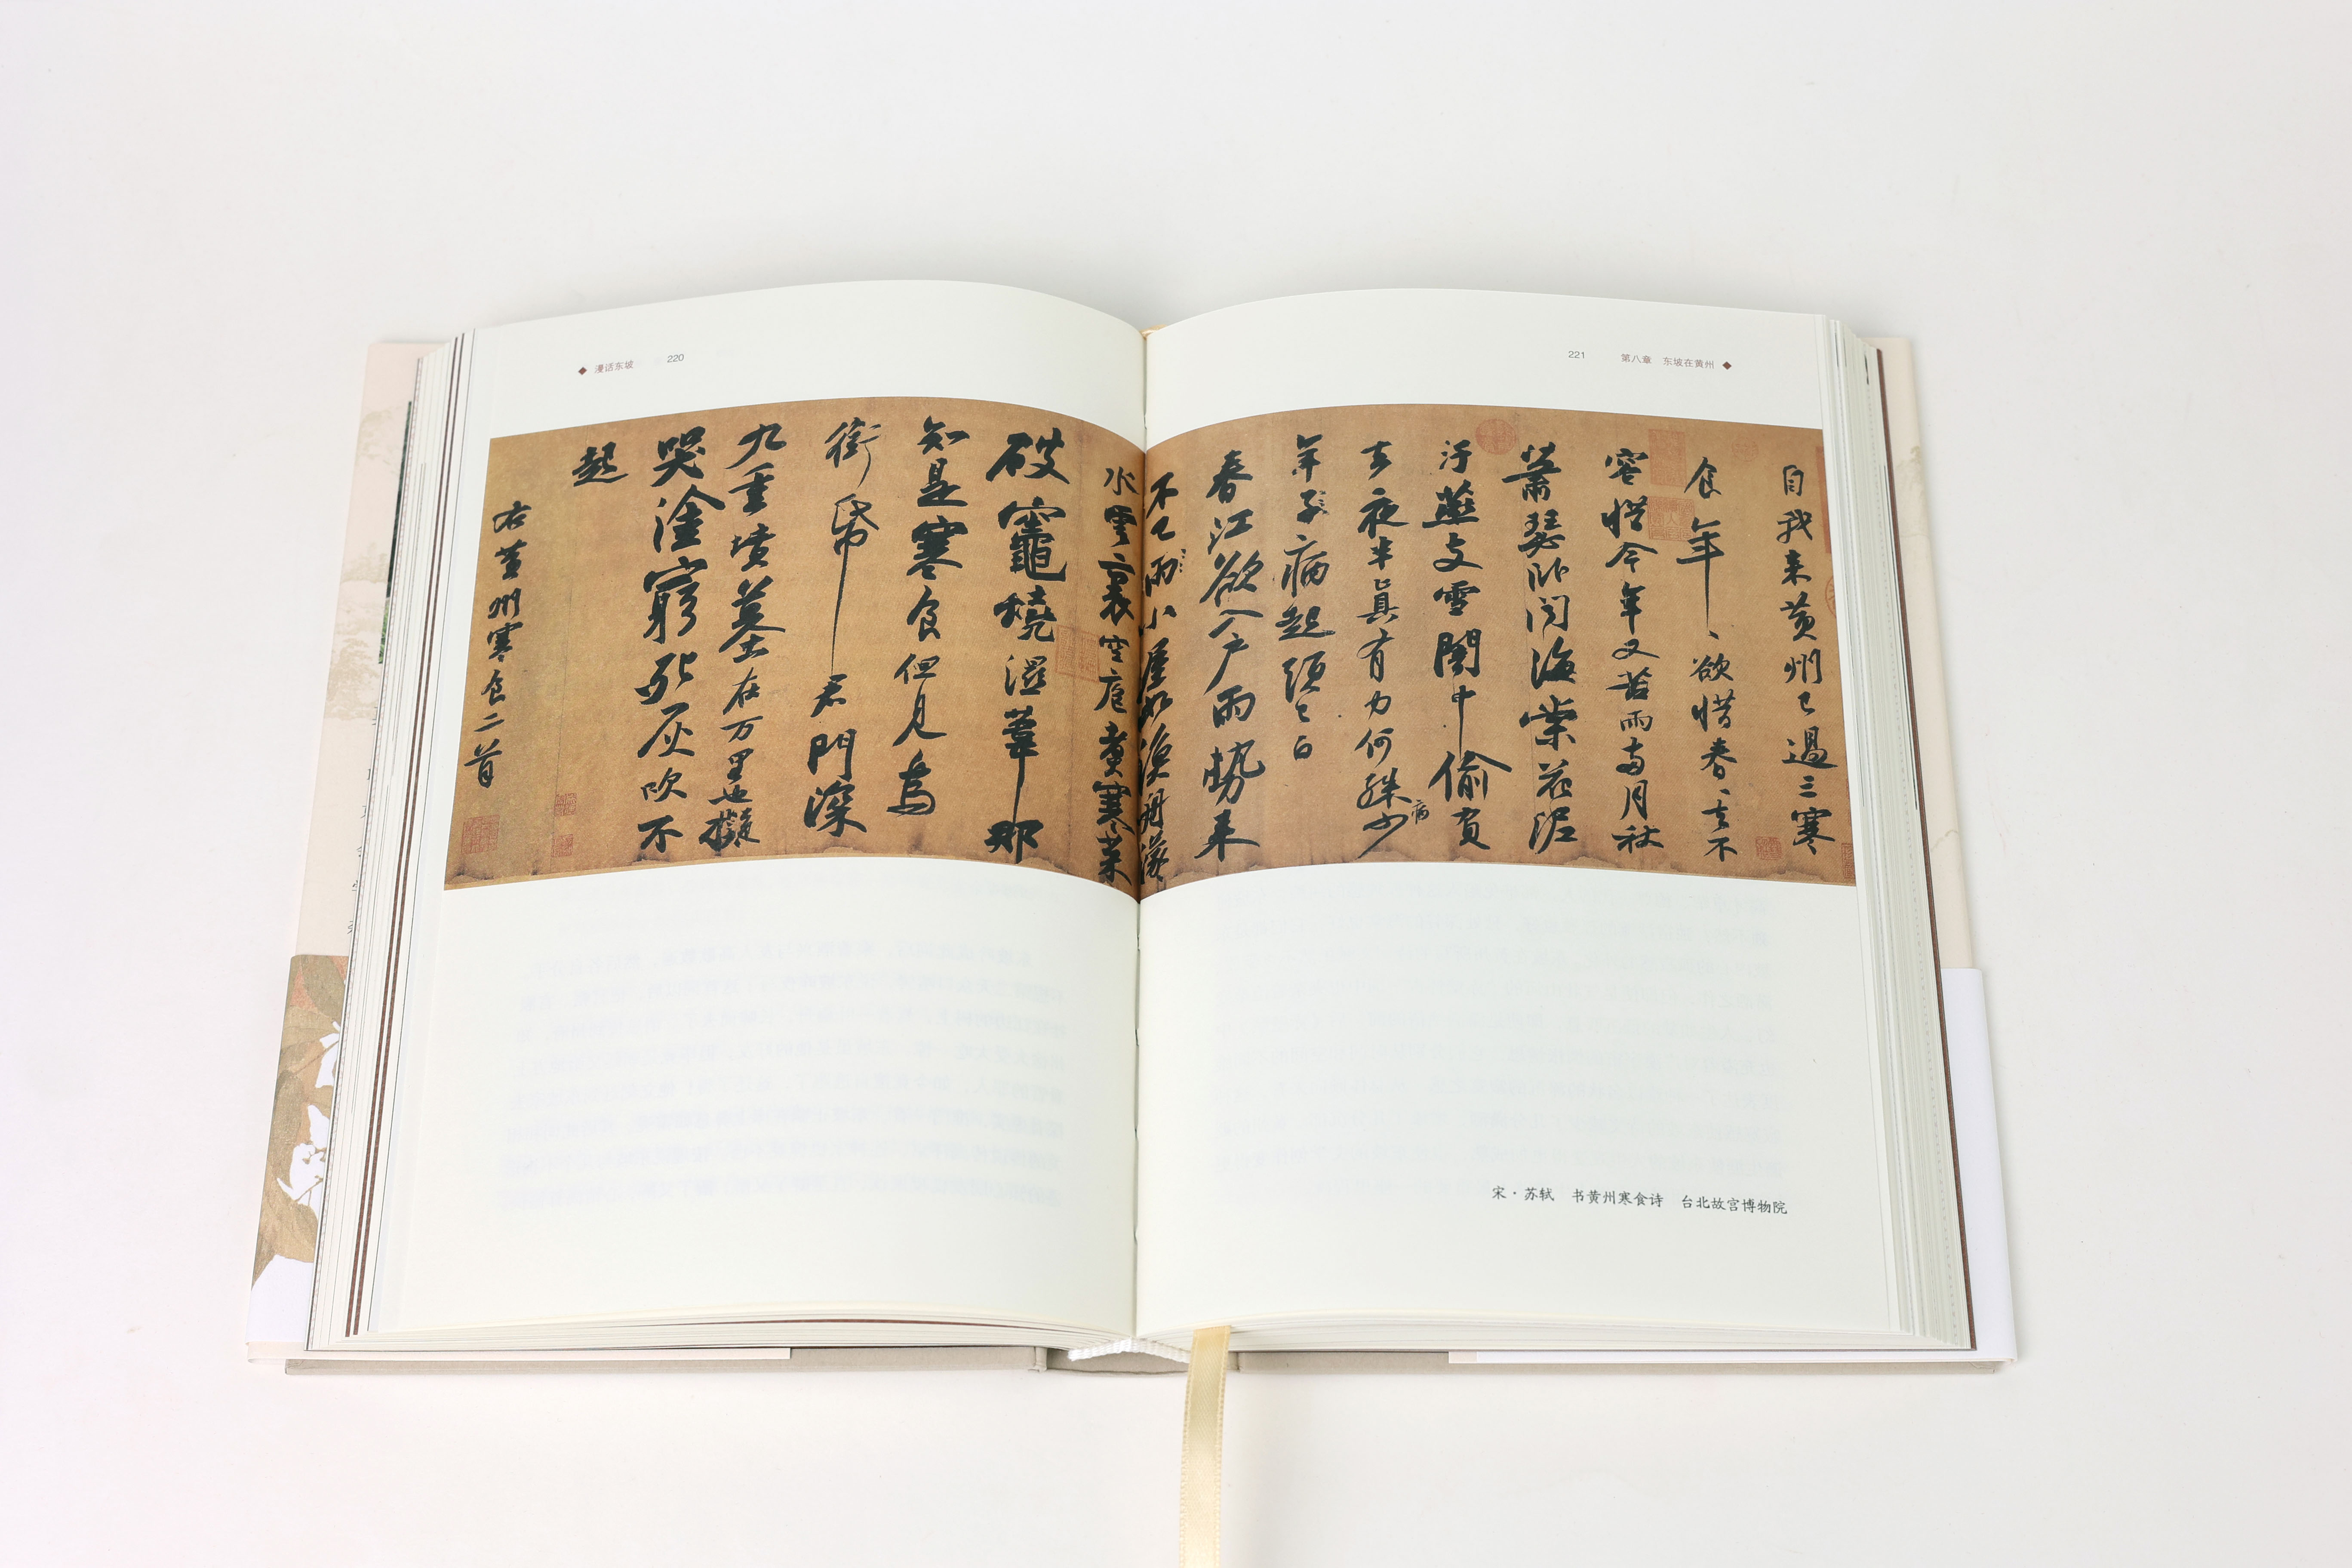 漫话东坡 220
221 第八章 东坡在黄州
自我来黄州已過三寒
食年、欲惜春、去不
容惜今年又苦雨兩月秋
蕭瑟卧聞海棠花泥
汙燕支雪闇中偷負
去夜半真有力何殊少
病
年子病起頭已白
春江欲入户雨勢来
不已雨小屋如漁舟濛々
水雲裏空庖煑寒菜
破竈燒濕葦那
知是寒食但見烏
銜帋君門深
九重墳墓在万里也擬
哭塗窮死灰吹不
起
右黄州寒食二首
宋·苏轼 书黄州寒食诗 台北故宫博物院